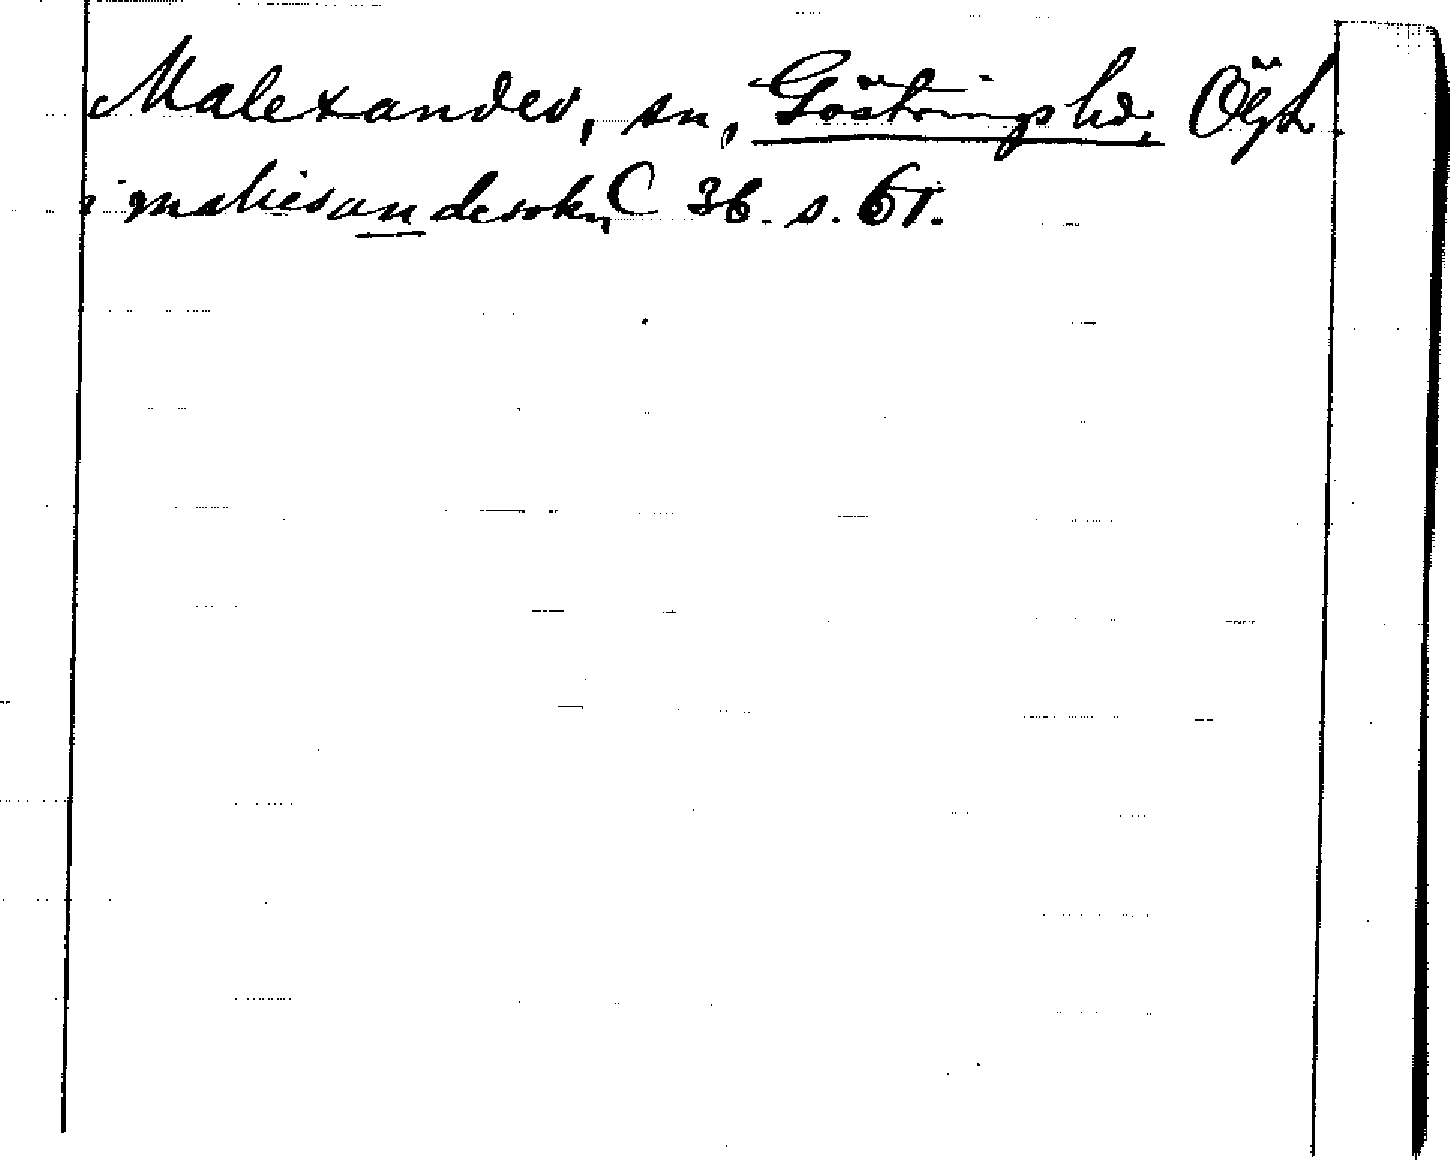 Malexander, sn, Göstrings hd, Ögl.
i malisandesokn C 36. s. 61.